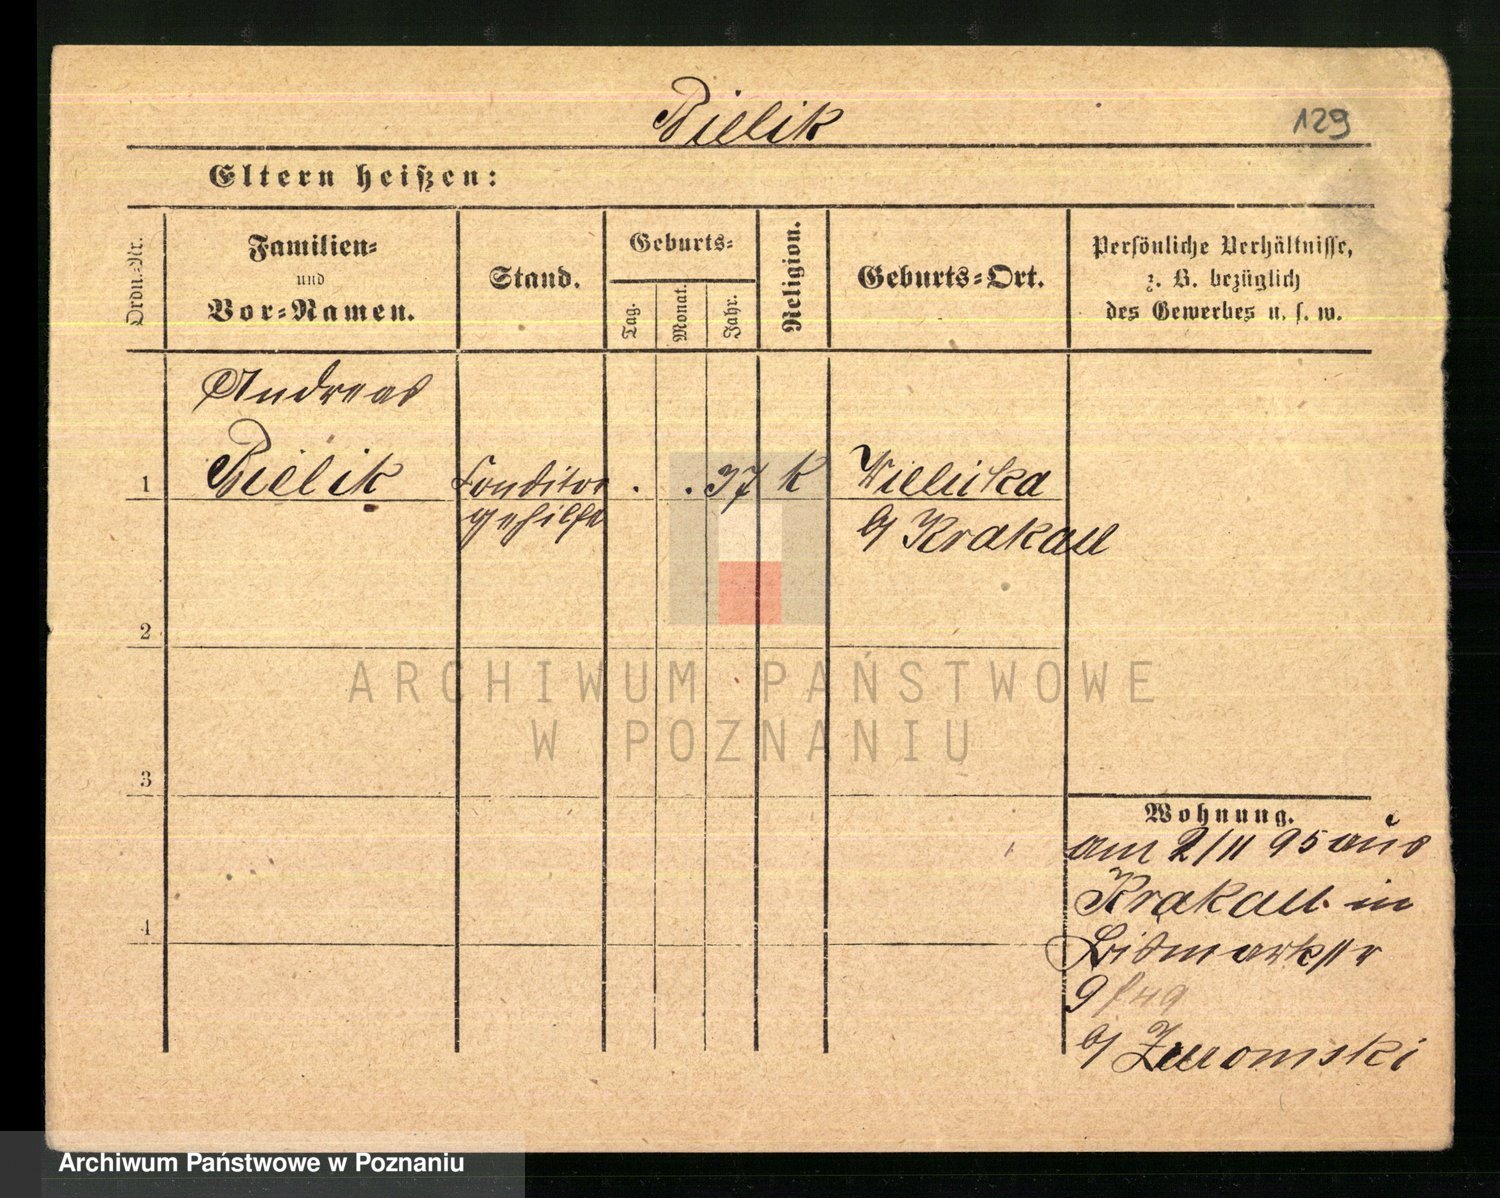 Bielik
129
Eltern heißen:
Ordn.-Nr.
Familien-
und
Vor-Namen.
Stand.
Geburts-
Tag.
Monat.
Jahr.
Religion.
Geburts-Ort.
Persönliche Verhältnisse,
z. B. bezüglich
des Gewerbes u. s. w.
Andreas
1 Bielik Conditor . . 37 k Wielicka
gehilfe b/ Krakau
2
3
4
ARCHIWUM PAŃSTWOWE
W POZNANIU
Wohnung.
am 2/11 95 aus
Krakau in
Bismarkstr
9
b/ Zuromski
Archiwum Państwowe w Poznaniu